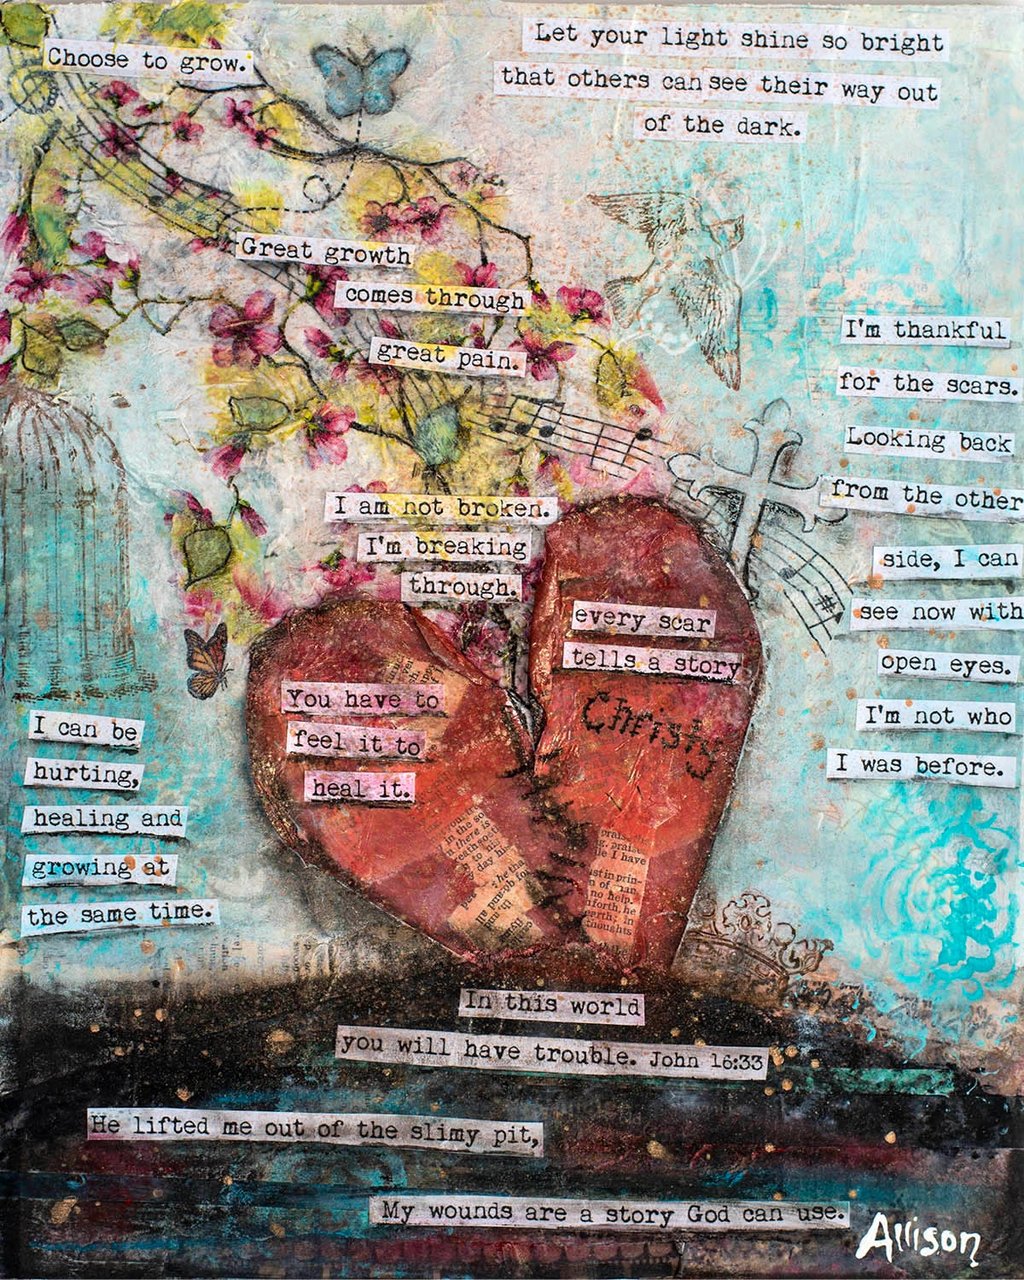 Choose to grow.
Let your light shine so bright
that others can see their way out
of the dark.
Great growth
comes through
great pain.
I'm thankful
for the scars.
Looking back
from the other
side, I can
see now with
open eyes.
I'm not who
I was before.
I am not broken.
I'm breaking
through.
every scar
tells a story
Christy
You have to
feel it to
heal it.
I can be
hurting,
healing and
growing at
the same time.
praise
I have
no help.
forth, he
earth; in
thoughts
In this world
you will have trouble. John 16:33
He lifted me out of the slimy pit,
My wounds are a story God can use.
Allison